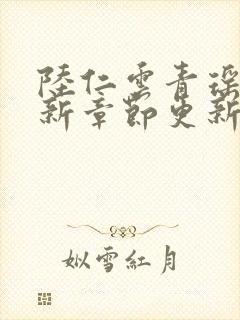 陸仁雲青瑤
新章節更新
姒雪紅月